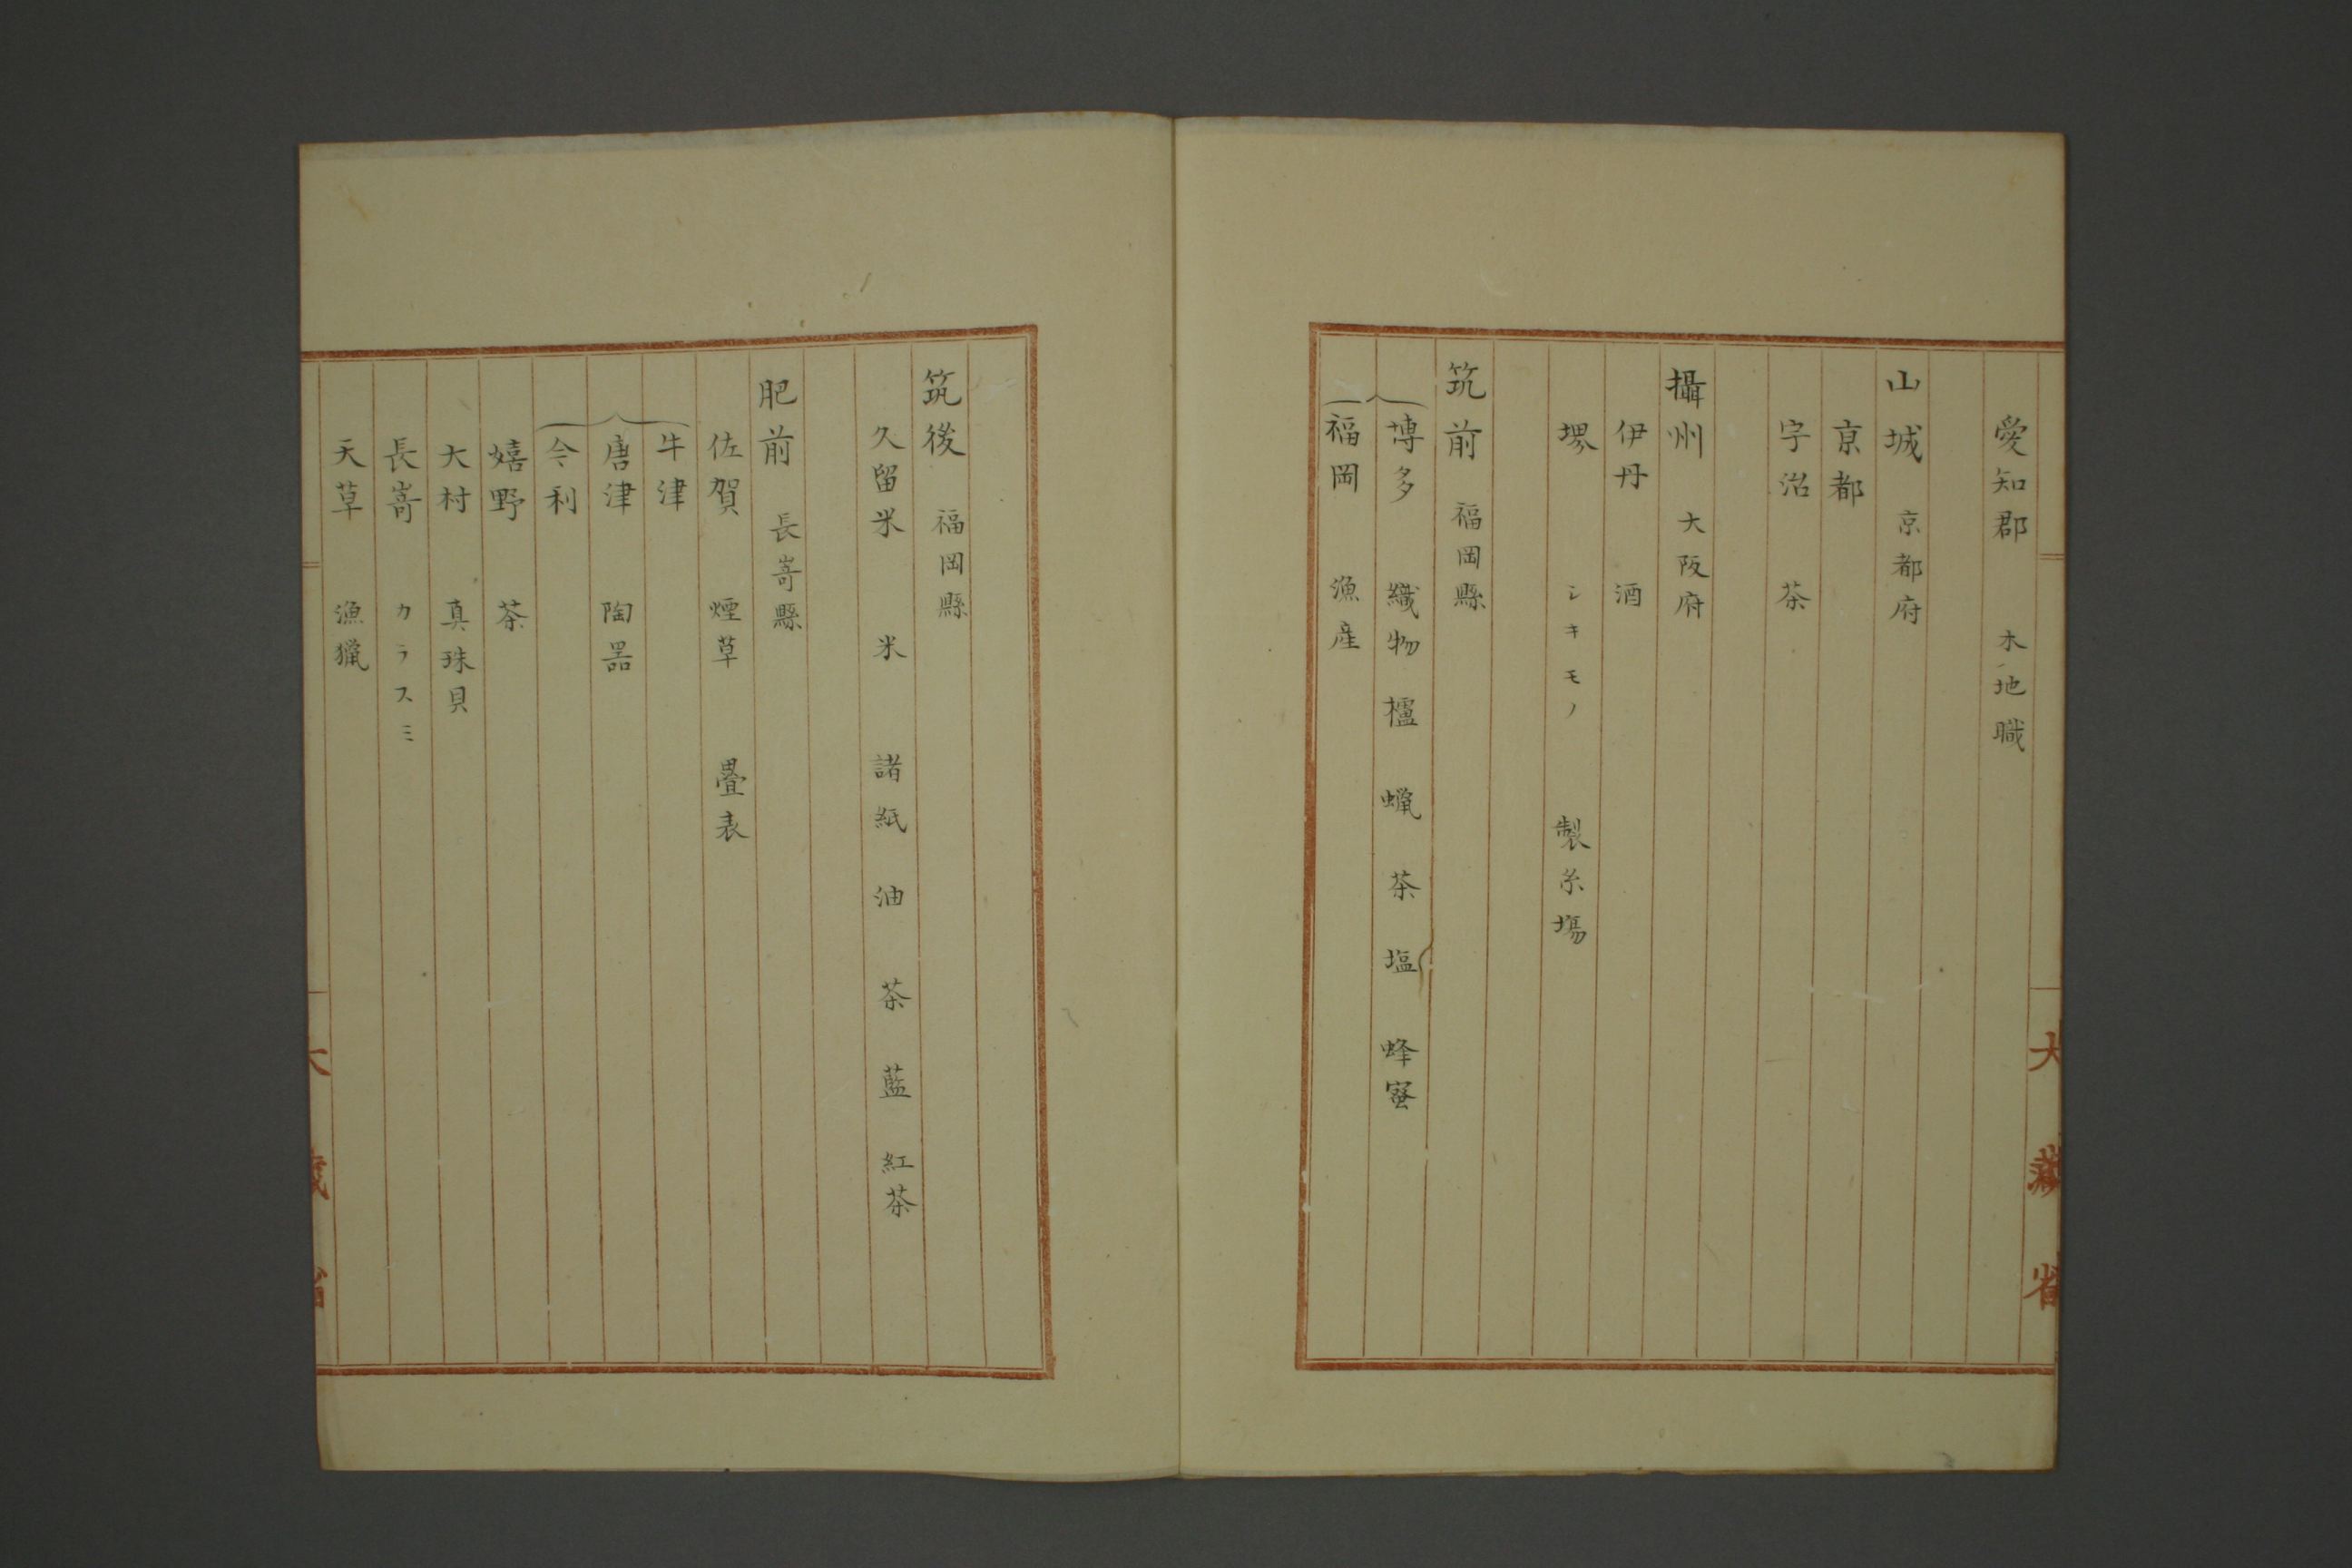 愛知郡 木地職
山城 京都府
京都
宇治 茶
攝州 大阪府
伊丹 酒
堺 シキモノ 製糸場
筑前 福岡縣
博多 織物 櫨 蝋 茶 塩 蜂蜜
福岡 漁産
大藏省
筑後 福岡縣
久留米 米 諸紙 油 茶 藍 紅茶
肥前 長嵜縣
佐賀 煙草 疊表
牛津
唐津 陶器
今利
嬉野 茶
大村 真珠貝
長嵜 カラスミ
天草 漁獵
大藏省